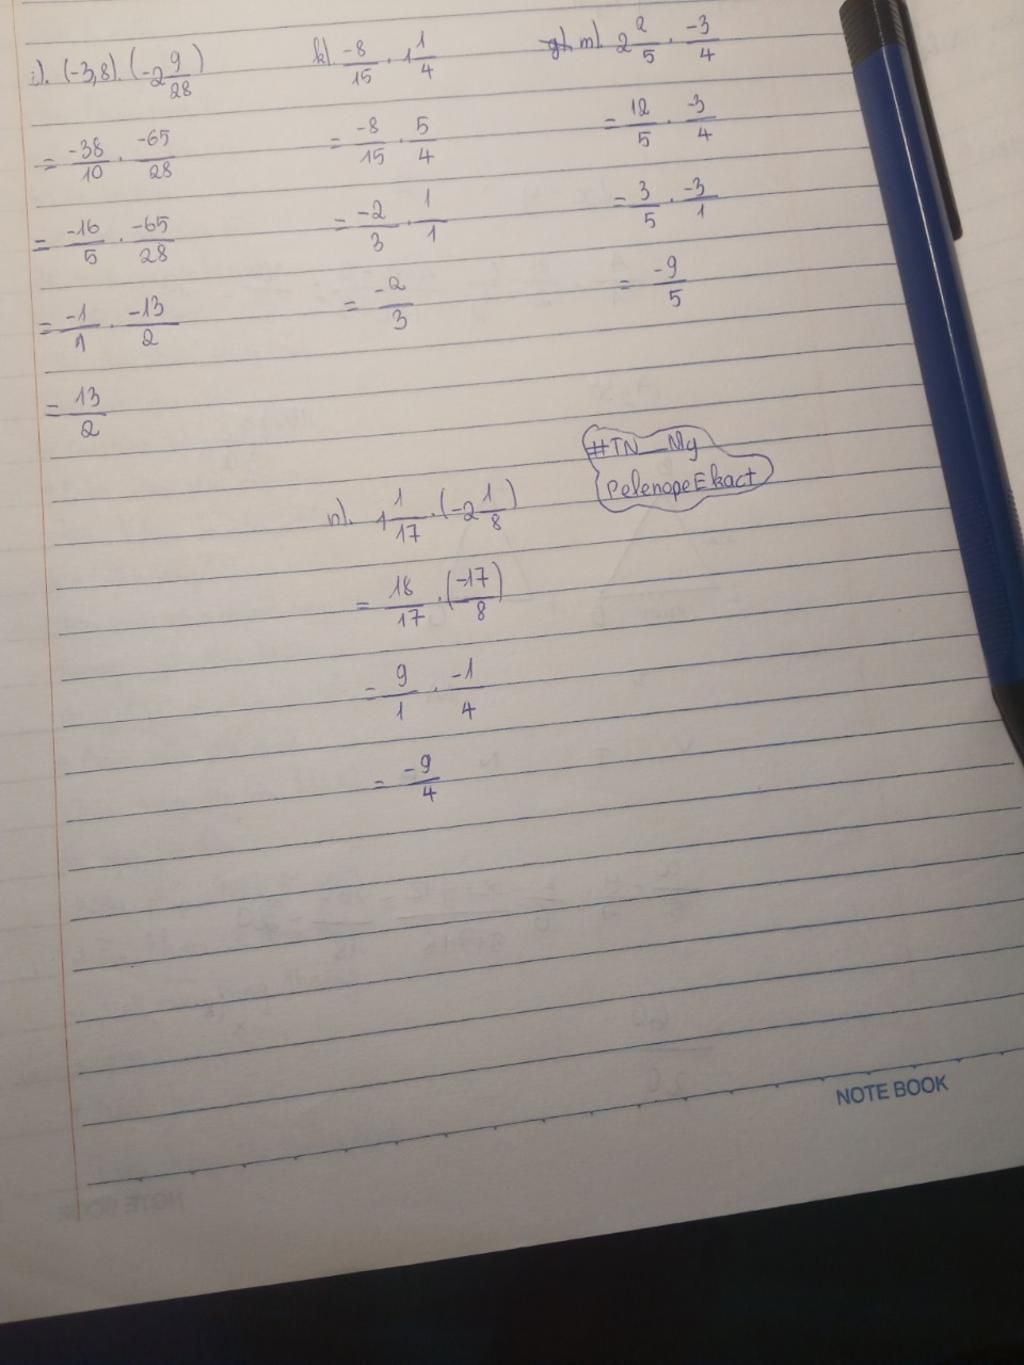 i). (-3,8). (-2 9/28)
= -38/10 . -65/28
= -16/5 . -65/28
= -1/1 . -13/2
= 13/2
k). -8/15 . 1 1/4
= -8/15 . 5/4
= -2/3 . 1/1
= -2/3
m). 2 2/5 . -3/4
= 12/5 . -3/4
= 3/5 . -3/1
= -9/5
#TN_My
PelenopeEkact
n). 1 1/17 . (-2 1/8)
= 18/17 . (-17/8)
= 9/1 . -1/4
= -9/4
NOTE BOOK